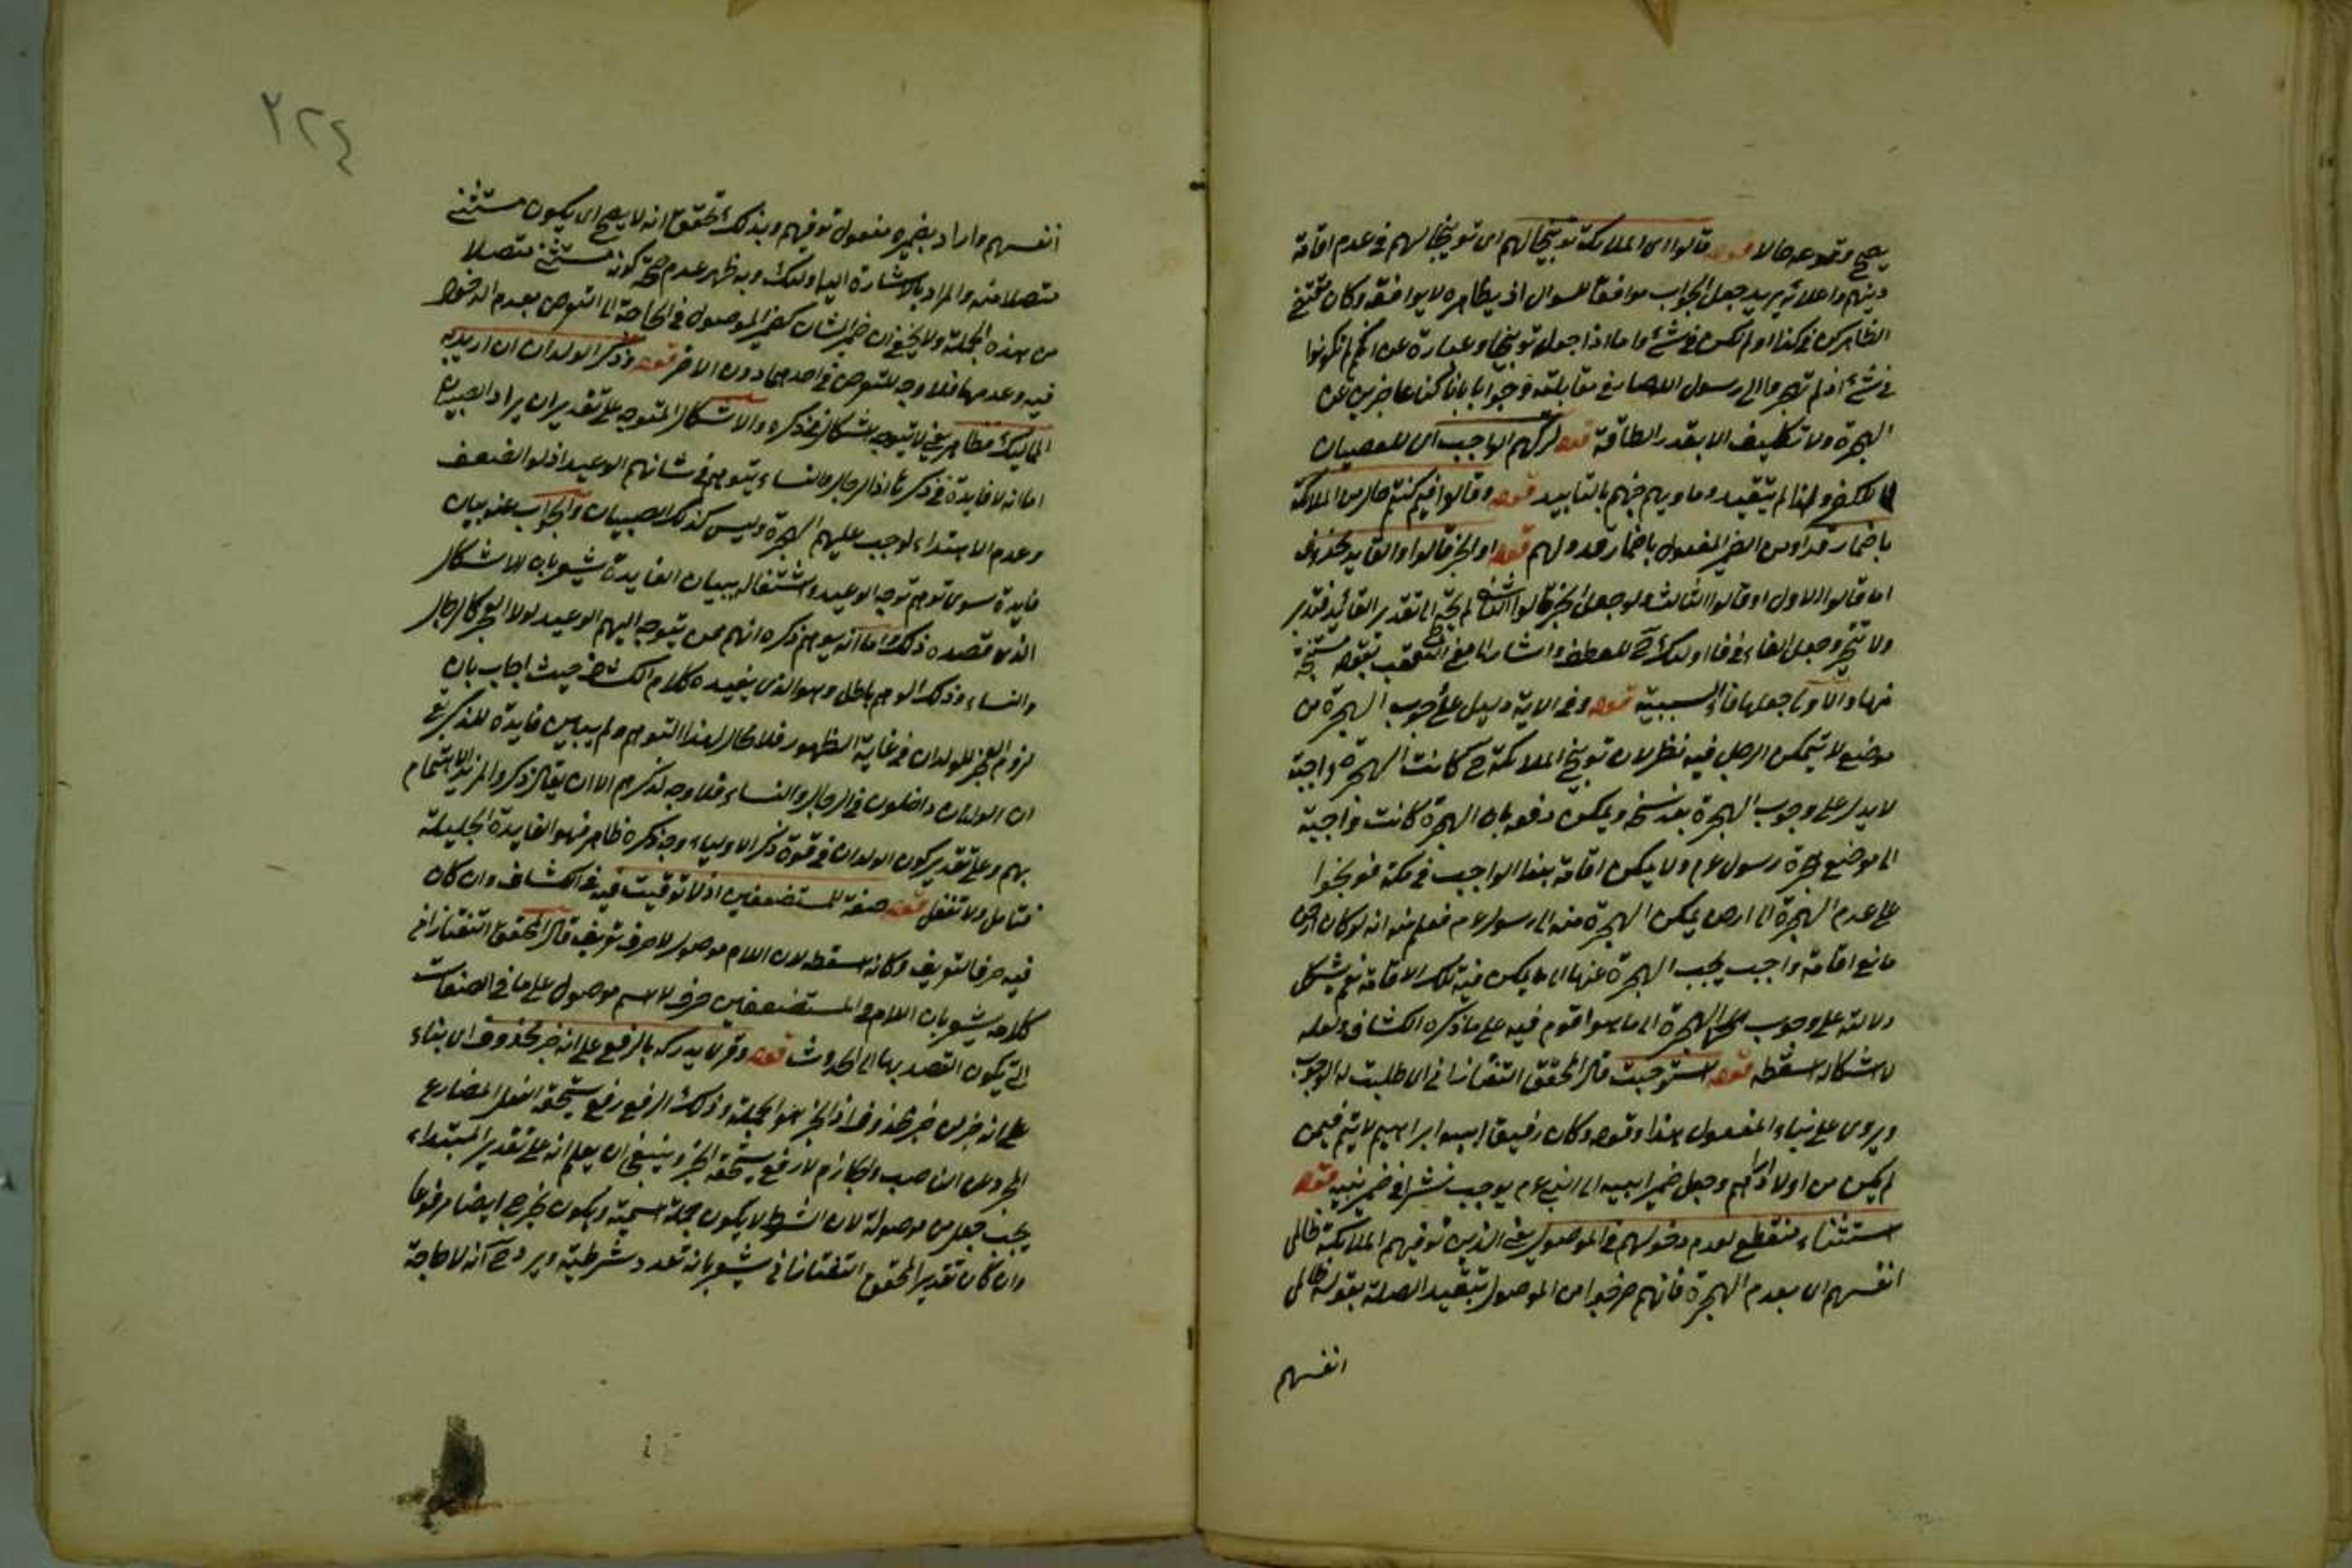 يصح وقوعه حالا قوله قالوا اى الملائكة توبيخا لهم اى توبيخا لهم فى عدم اقامة
دينهم واعلائه يريد جعل الجواب موافقا للسؤال اذ بظاهره لا يوافقه وكان مقتضى
الظاهر كنا فى كذا او لم نكن فى شئ واما اذا جعل توبيخا وعبارة عن انكم لم تكونوا
فى شئ اذ لم تهاجروا الى رسول الله صار فى مقابلته وجوابا بانا كنا عاجزين عن
الهجرة ولا تكليف الا بقدر الطاقة قوله لتركهم الواجب اى للعصيان
لا للكفر ولهذا لم يتقيد وماويهم جهنم بالتابيد قوله وقالوا فيم كنتم حال من الملائكة
باضمار قد او من الضمير المفعول باضمار قد ولهم قوله او الخبر قالوا والعايد محذوف
اما قالوا الاول او قالوا الثالث ولو جعل الخبر قالوا الثانى لم يحتج الى تقدير العائد فتدبر
ولا تتحير وجعل الفاء فى فاولئك ح للعطف واشار الى معنى التعقب بقوله مستنتجة
منها والاولى جعلها فاء السببية قوله وفى الاية دليل على وجوب الهجرة من
موضع لا يتمكن الرجل فيه نظر لان توبيخ الملائكة ح كانت الهجرة واجبة
لا يدل على وجوب الهجرة بعد نسخه ويمكن دفعه بان الهجرة كانت واجبة
الى موضع هجرة رسول عم ولا يمكن اقامة هذا الواجب فى مكة فوبخوا
على عدم الهجرة الى ارض يمكن الهجرة منه الى رسول عم فعلم منه انه لو كان ارض
مانع اقامة واجب يجب الهجرة عنها الى ما يمكن فيه تلك الاقامة نعم يشكل
دلالته على وجوب الهجرة الى ما هو اقوم فيه على ما ذكره الكشاف ولعله
لاشكاله اسقطه قوله استوجبت قال المحقق التفتازانى اى طلبت له الوجوب
ويروى على بناء المفعول هذا وقوله وكان رفيق ابيه ابراهيم لا يتم فيمن
لم يكن من اولاد ابراهيم وجعل ضمير ابيه الى النبى عم يوجب نشرا فى ضمير نبيه قوله
استثناء منقطع لعدم دخولهم فى الموصول يعنى الذين توفيهم الملائكة ظالمى
انفسهم اى بعدم الهجرة فانهم خرجوا من الموصول بتقييد الصلة بقوله ظالمى
انفسهم
٢٢٤
انفسهم واراد بضميره مفعول توفيهم وبذلك تحقق انه لا يصح ان يكون مستثنى
متصلا منه والمراد بالاشارة اليه اولئك وبه ظهر عدم صحة كونه مستثنى متصلا
من هذه الجملة ولا يخفى ان ضمير الشان كضمير الموصول فى الحاجة الى التعرض بعدم الدخول
فيه وعدمها فلا وجه للتعرض فى احدهما دون الاخر قوله وذكر الولدان ان اريد به
المماليك فظاهر يعنى لا يتوجه اشكال فى ذكره والاشكال المتوجه على تقدير ان يراد الصبيان
اما انه لا فايدة فى ذكره اذ الرجال والنساء يتوهم فى شانهم الوعيد اذ لو الضعف
وعدم الاهتداء لوجب عليهم الهجرة وليس كذلك الصبيان والجواب عنه ببيان
فايدة سوى توهم توجه الوعيد واشتغال ببيان الفايدة يشعر بان الاشكال
الذى قصده ذلك اما انه يوهم ذكره انهم ممن يتوجه اليهم الوعيد لولا العجز كالرجال
والنساء وذلك الوهم باطل وهو الذى يفيده كلام الكشاف حيث اجاب بان
لزوم العجز للولدان فى غاية الظهور فلا مجال لهذا التوهم ولم يبين فايدة للذكر مع
ان الولدان داخلون فى الرجال والنساء فلا وجه لذكرهم الا ان يقال ذكروا لمزيد الاهتمام
بهم وعلى تقدير كون الولدان فى قوة ذكر الاولياء وجه ذكره ظاهر فهو الفايدة الجليلة
فتامل ولا تغفل قوله صفة للمستضعفين اذ لا توقيت فيه فى الكشاف وان كان
فيه حرف التعريف وكانه اسقطه لان اللام موصول لا حرف تعريف قال المحقق التفتازانى
كلامه يشعر بان اللام فى المستضعفين حرف لا اسم موصول على ما فى الصفات
التى يكون القصد بها الى الحدوث قوله وقرئ يدركه بالرفع على انه خبر محذوف اى بناء
على انه جزء من خبر محذوف اذ الخبر هو الجملة وذلك الرفع رفع يستحقه الفعل المضارع
المجرد عن الناصب والجازم لا رفع يستحقه الخبر وينبغى ان يعلم انه على تقدير المبتداء
يجب جعل من موصولة لان الشرط لا يكون جملة اسمية ويكون يخرج ايضا مرفوعا
وان كان تقدير المحقق التفتازانى يشعر بانه تعدد شرطية ويرد ح انه لا حاجة